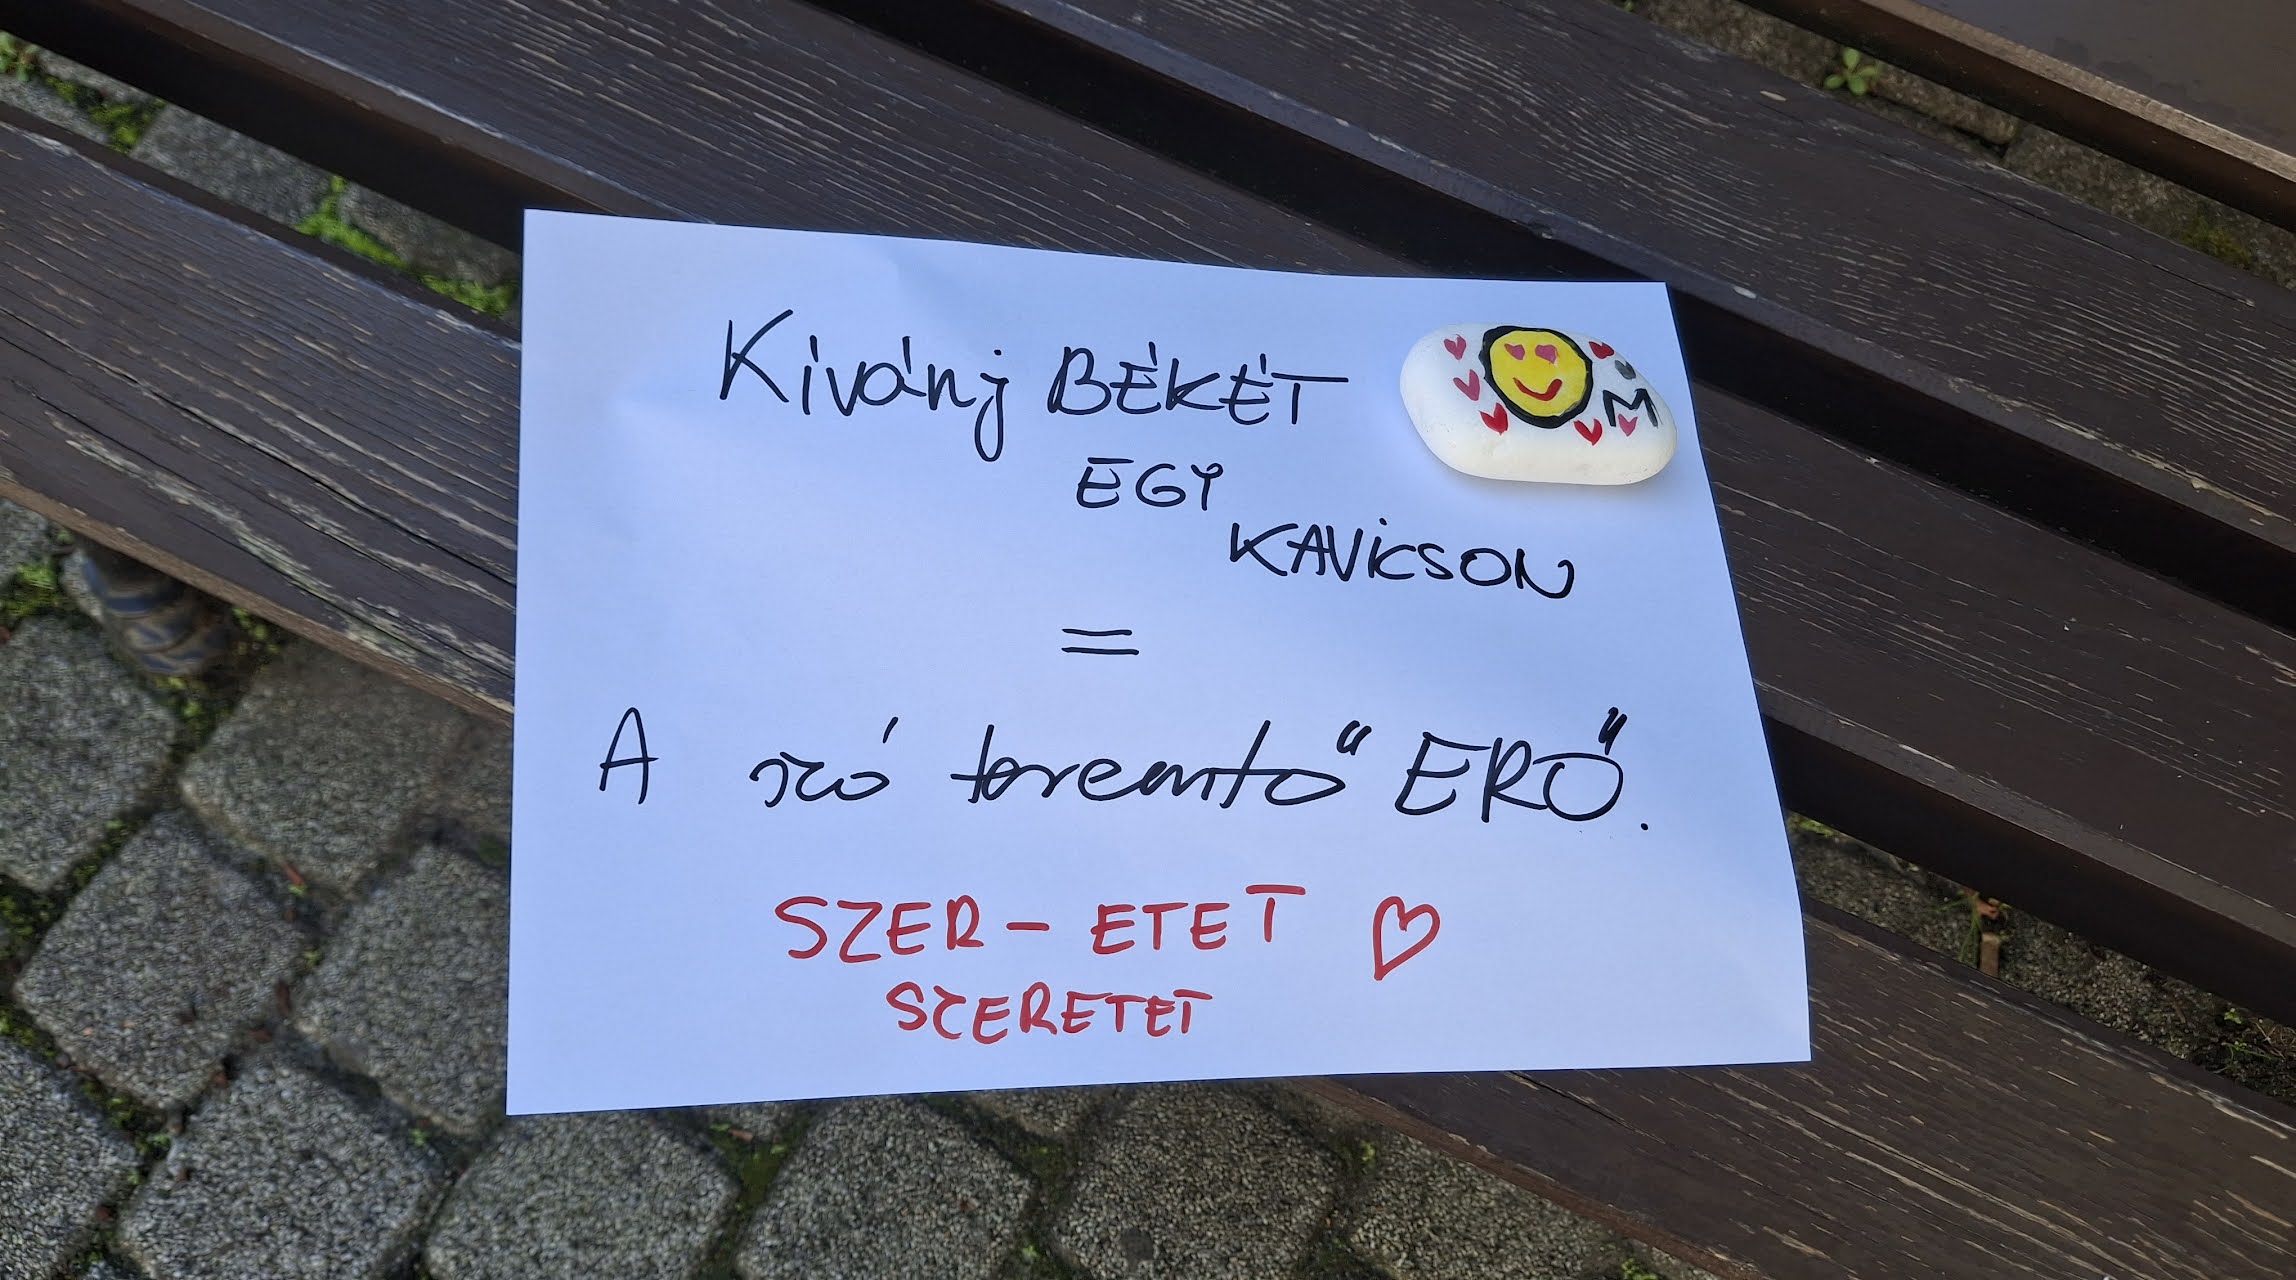 Kívánj BÉKÉT
EGY
KAVICSON
=
A szó teremtő ERŐ.
SZER - ETET ♡
SZERETET
M